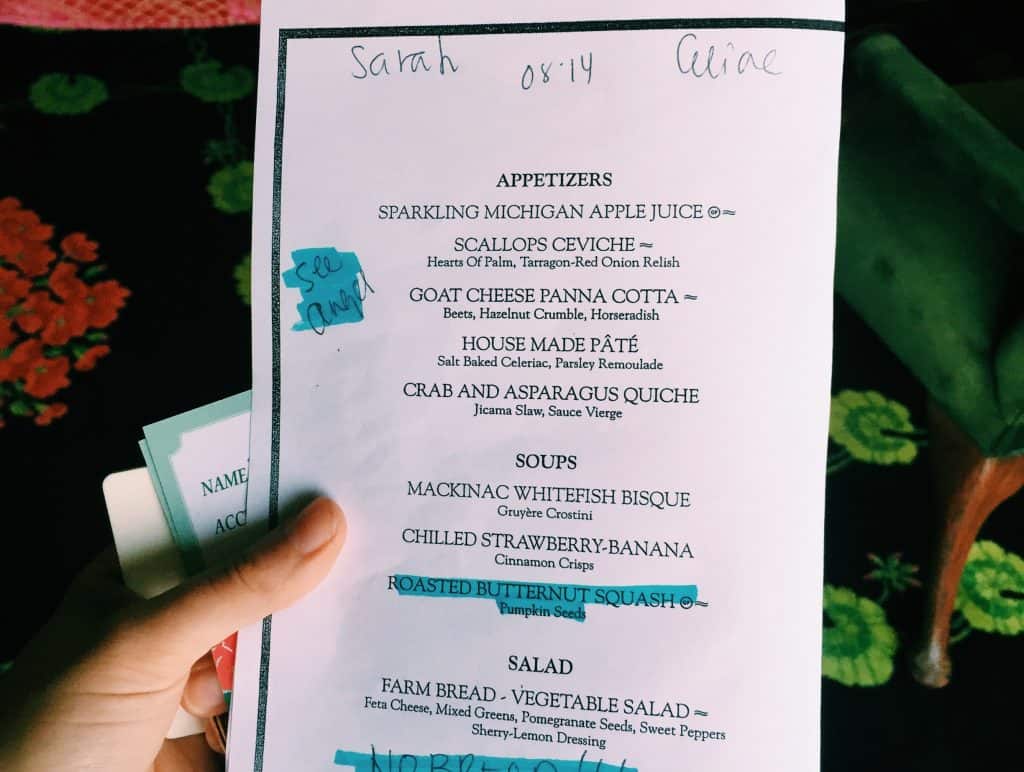 Sarah 08·14 Celiac
APPETIZERS
SPARKLING MICHIGAN APPLE JUICE ≈
SCALLOPS CEVICHE ≈
Hearts Of Palm, Tarragon-Red Onion Relish
see
angel
GOAT CHEESE PANNA COTTA ≈
Beets, Hazelnut Crumble, Horseradish
HOUSE MADE PÂTÉ
Salt Baked Celeriac, Parsley Remoulade
CRAB AND ASPARAGUS QUICHE
Jicama Slaw, Sauce Vierge
SOUPS
MACKINAC WHITEFISH BISQUE
Gruyère Crostini
CHILLED STRAWBERRY-BANANA
Cinnamon Crisps
ROASTED BUTTERNUT SQUASH ≈
Pumpkin Seeds
SALAD
FARM BREAD - VEGETABLE SALAD ≈
Feta Cheese, Mixed Greens, Pomegranate Seeds, Sweet Peppers
Sherry-Lemon Dressing
NO BREAD !!!
NAME
ACC